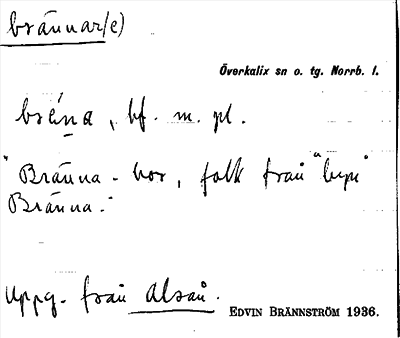 brännar(e)
Överkalix sn o. tg. Norrb. l.
bréna, bf. m. pl.
"Bränna-bor, folk från "byn"
Bränna."
Uppg. från Alsån.
EDVIN BRÄNNSTRÖM 1936.